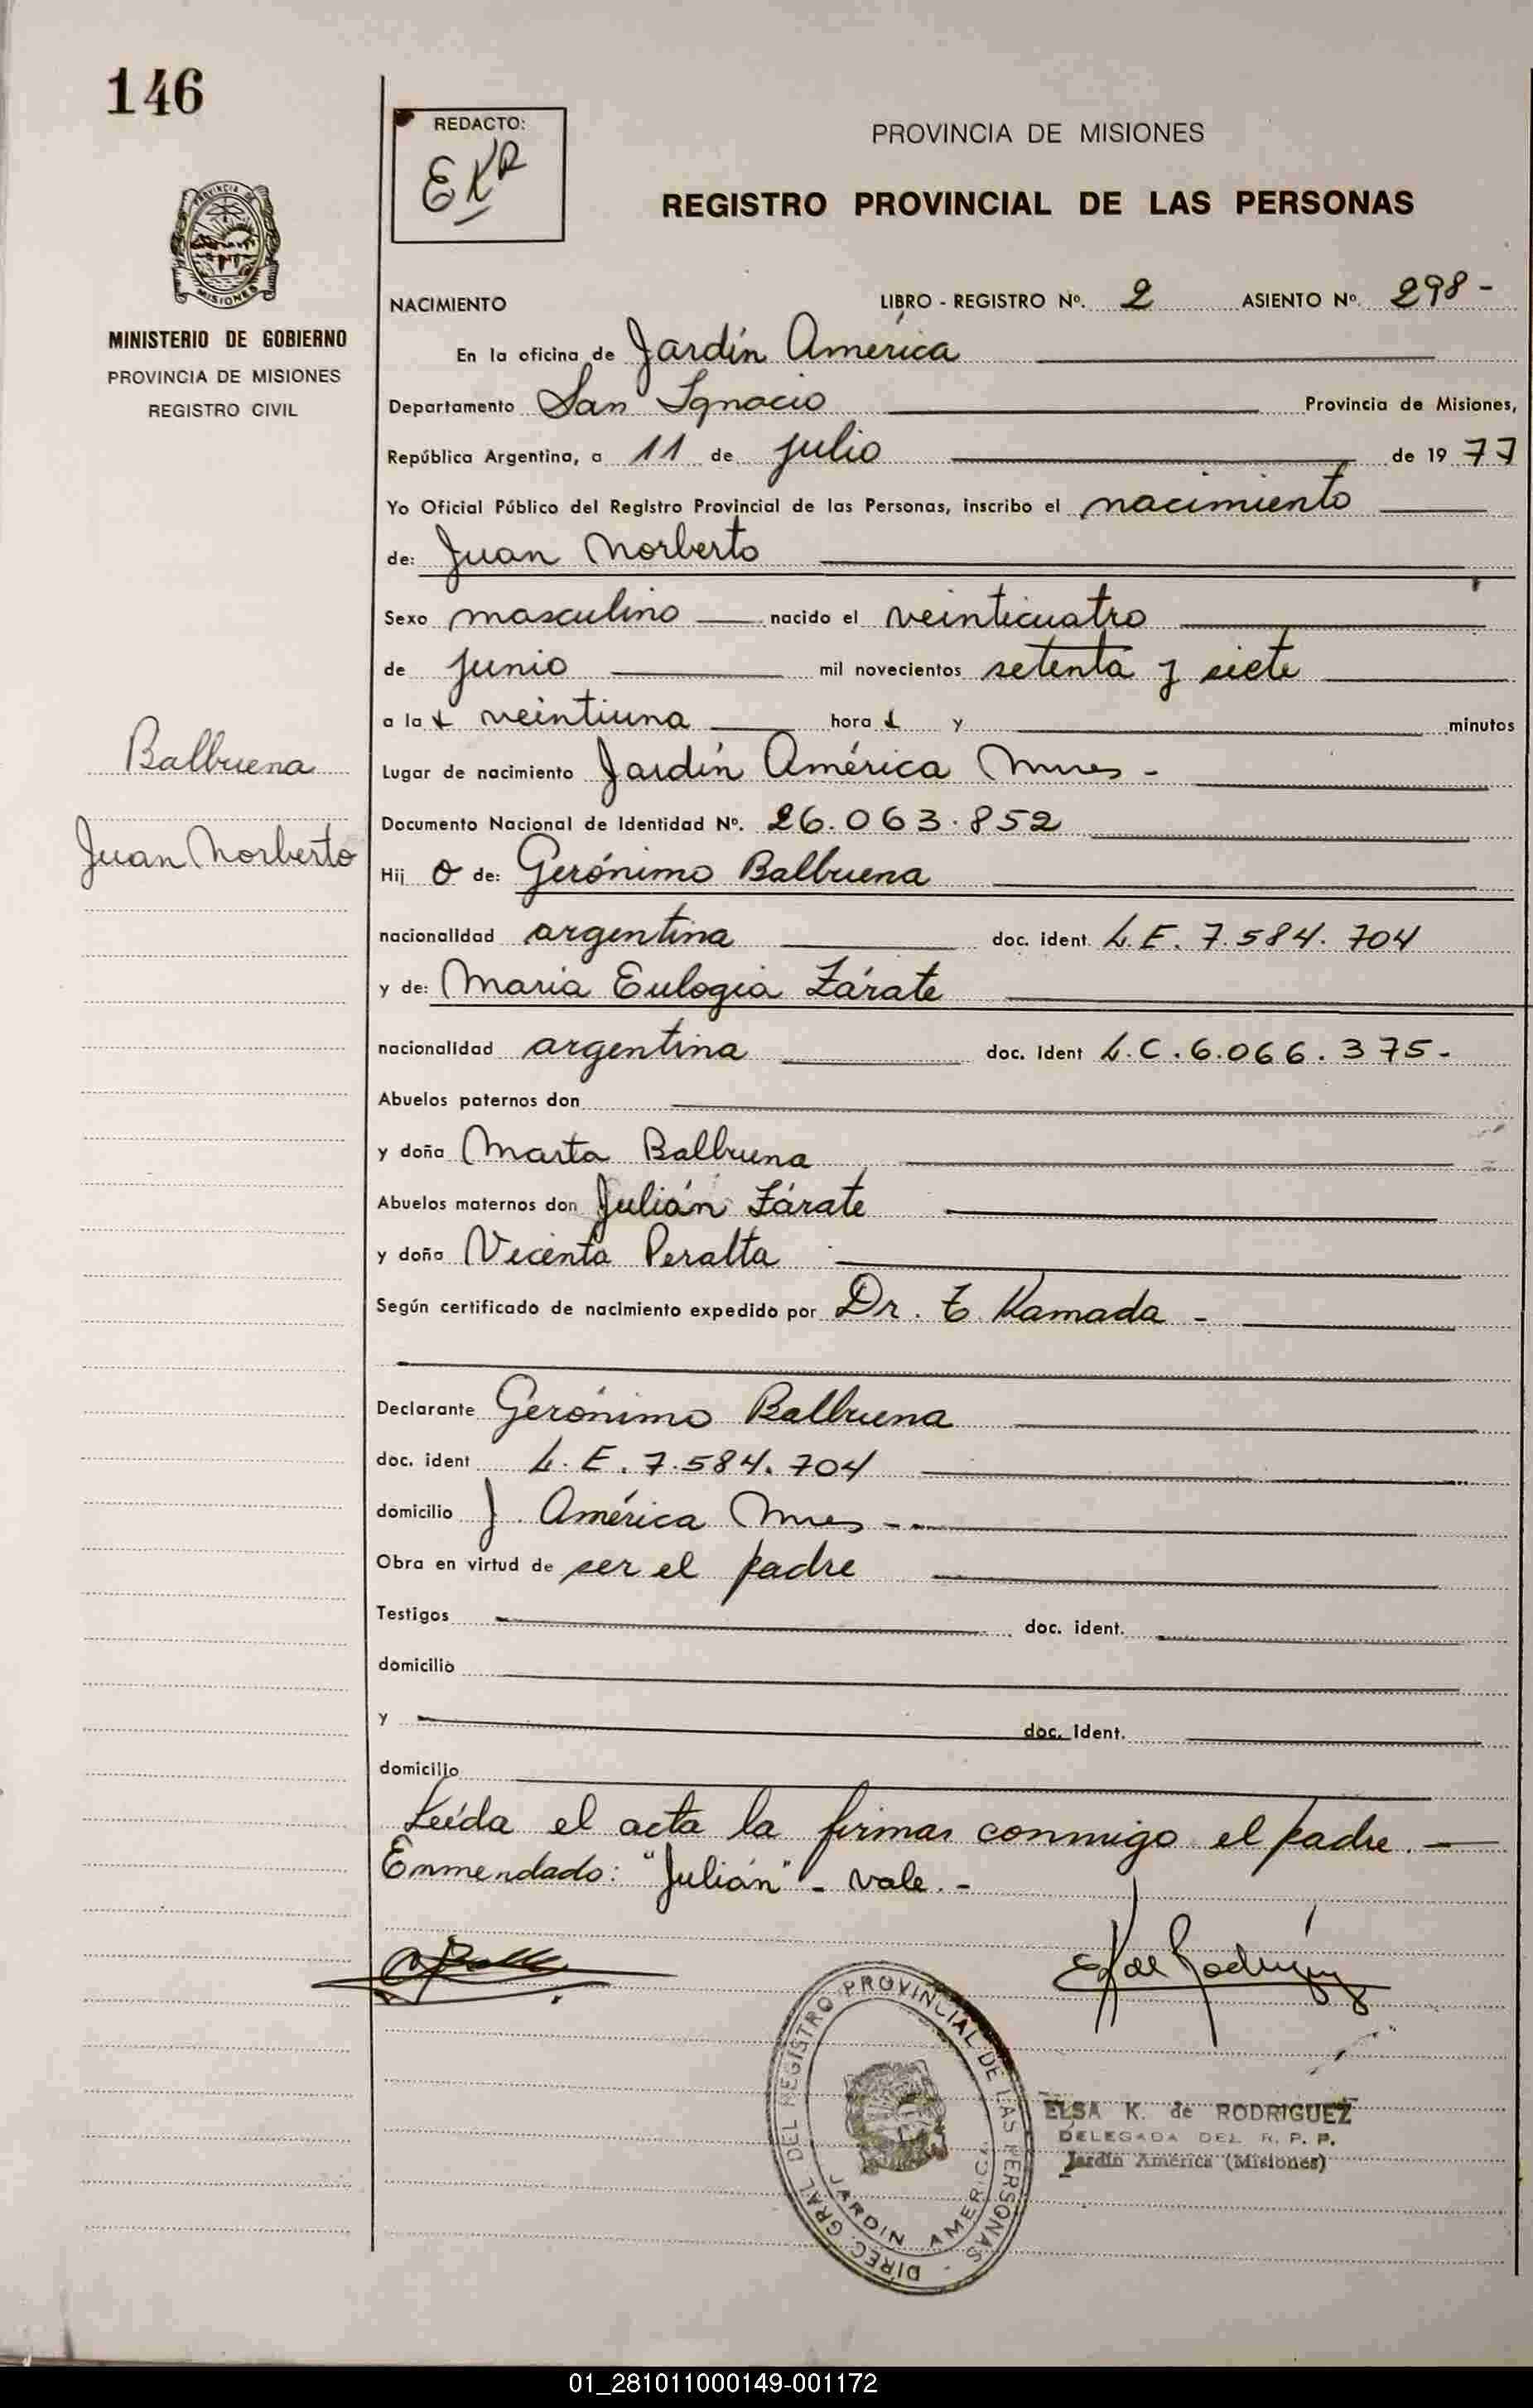 146
REDACTO:
EKR
PROVINCIA DE MISIONES
REGISTRO PROVINCIAL DE LAS PERSONAS
PROVINCIA DE
MISIONES
MINISTERIO DE GOBIERNO
PROVINCIA DE MISIONES
REGISTRO CIVIL
NACIMIENTO LIBRO - REGISTRO Nº. 2 ASIENTO Nº. 298-
En la oficina de Jardín América
Departamento San Ignacio Provincia de Misiones,
República Argentina, a 11 de julio de 19 77
Yo Oficial Público del Registro Provincial de las Personas, inscribo el nacimiento
de: Juan Norberto
Sexo masculino nacido el veinticuatro
de junio mil novecientos setenta y siete
a la s veintiuna hora s y minutos
Lugar de nacimiento Jardín América Mnes -
Balbuena
Juan Norberto
Documento Nacional de Identidad Nº. 26.063.852
Hij o de: Gerónimo Balbuena
nacionalidad argentina doc. ident. L.E. 7.584.704
y de: Maria Eulogia Zárate
nacionalidad argentina doc. ident L.C. 6.066.375-
Abuelos paternos don
y doña Marta Balbuena
Abuelos maternos don Julián Zárate
y doña Vicenta Peralta
Según certificado de nacimiento expedido por Dr. T. Kamada -
Declarante Gerónimo Balbuena
doc. ident L.E. 7.584.704
domicilio J. América Mnes -
Obra en virtud de ser el padre
Testigos doc. ident.
domicilio
y doc. ident.
domicilio
Leída el acta la firman conmigo el padre. -
Enmendado: "Julián" - vale. -
EK de Rodríguez
DIREC. GRAL DEL REGISTRO PROVINCIAL DE LAS PERSONAS
JARDIN AMERICA
ELSA K. de RODRIGUEZ
DELEGADA DEL R. P. P.
Jardín América (Misiones)
01_281011000149-001172